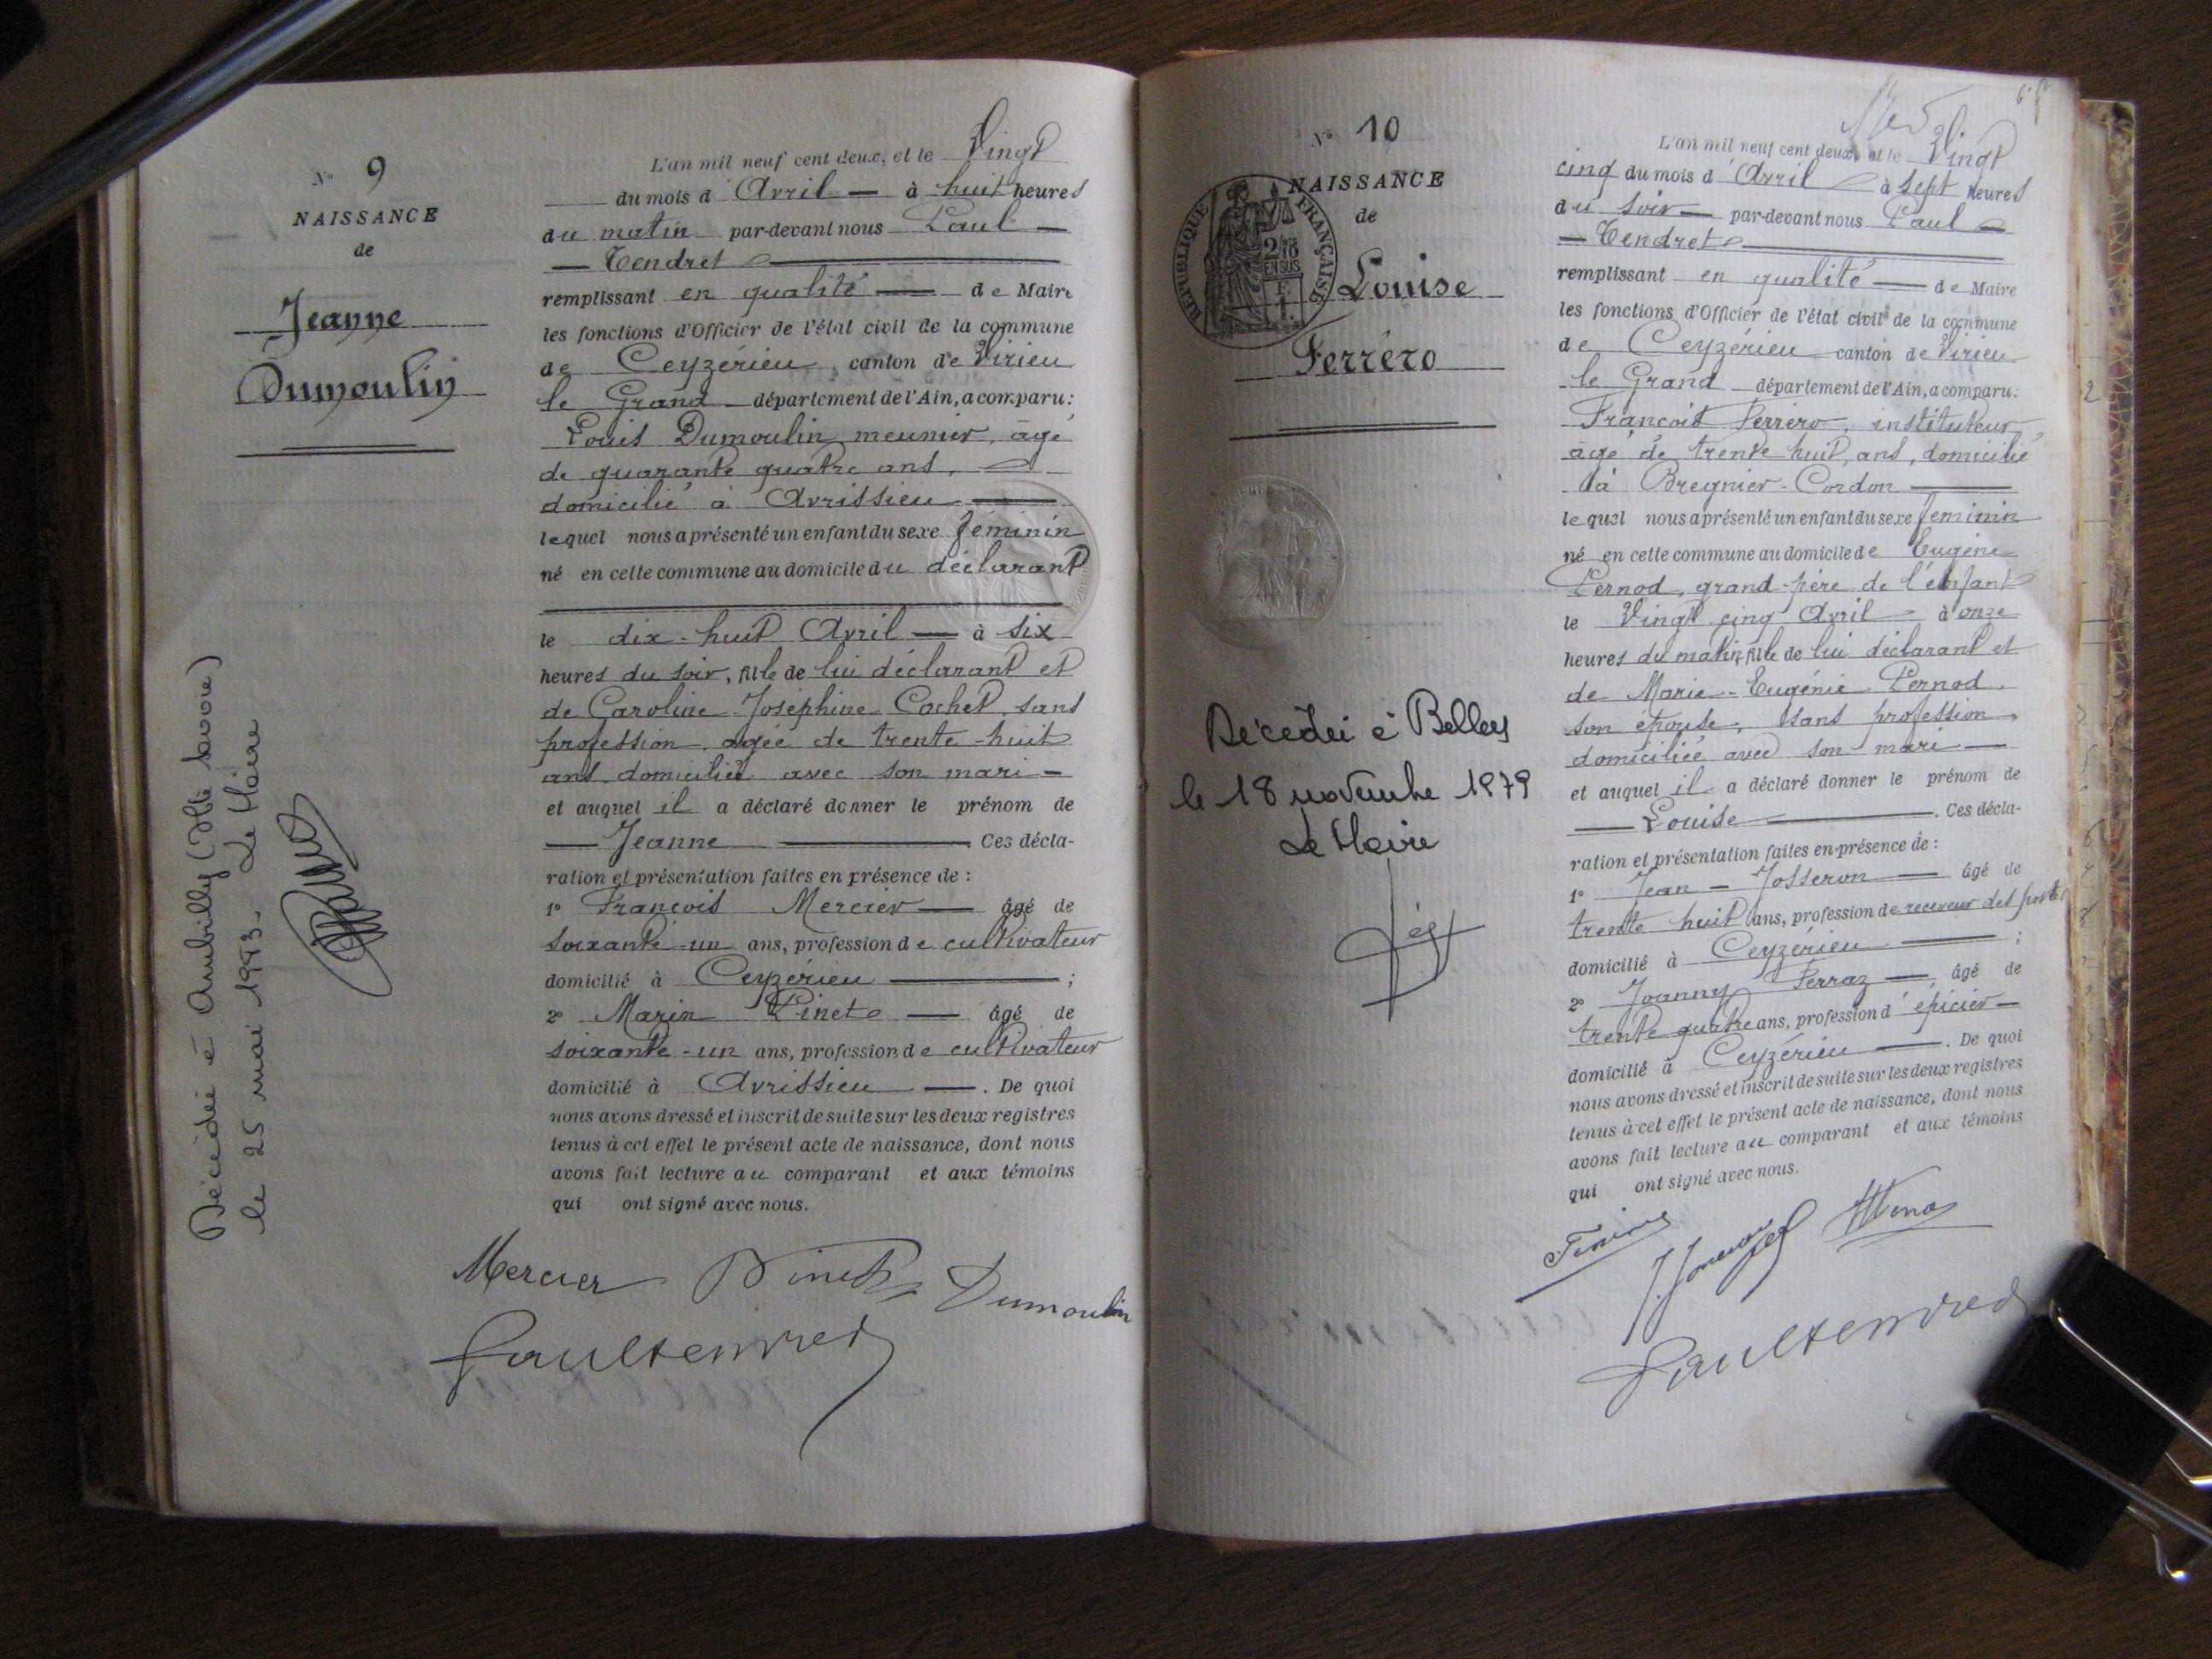 N° 9
NAISSANCE
de
Jeanne
Dumoulin
Décédée à Ambilly (Hte Savoie)
le 25 mai 1993. Le Maire
L'an mil neuf cent deux, et le Vingt
du mois d'Avril — à huit heures
du matin par-devant nous Paul —
— Tendret
remplissant en qualité — de Maire
les fonctions d'Officier de l'état civil de la commune
de Ceyzérieu, canton de Virieu
le Grand département de l'Ain, a comparu:
Louis Dumoulin, meunier, âgé
de quarante quatre ans,
domicilié à Avrissieu —
lequel nous a présenté un enfant du sexe féminin
né en cette commune au domicile du déclarant
le dix-huit Avril — à six
heures du soir, fille de lui déclarant et
de Caroline Joséphine Cochet, sans
profession, agée de trente-huit
ans, domiciliée avec son mari —
et auquel il a déclaré donner le prénom de
— Jeanne — Ces décla-
ration et présentation faites en présence de :
1° François Mercier — âgé de
soixante-un ans, profession de cultivateur
domicilié à Ceyzérieu — ;
2° Marin Pinet — âgé de
soixante-un ans, profession de cultivateur
domicilié à Avrissieu —. De quoi
nous avons dressé et inscrit de suite sur les deux registres
tenus à cet effet le présent acte de naissance, dont nous
avons fait lecture au comparant et aux témoins
qui ont signé avec nous.
Mercier Pinet Dumoulin
Paul Tendret
N° 10
NAISSANCE
de
Louise
Ferrero
RÉPUBLIQUE FRANÇAISE
2/10
EN SUS
Décédée à Belley
le 18 novembre 1979
Le Maire
L'an mil neuf cent deux, et le Vingt
cinq du mois d'Avril — à sept heures
du soir — par-devant nous Paul —
— Tendret
remplissant en qualité — de Maire
les fonctions d'Officier de l'état civil de la commune
de Ceyzérieu canton de Virieu
le Grand département de l'Ain, a comparu:
François Ferrero, instituteur,
âgé de trente huit ans, domicilié
à Bregnier-Cordon —
lequel nous a présenté un enfant du sexe féminin
né en cette commune au domicile de Eugène
Pernod, grand-père de l'enfant
le Vingt cinq Avril — à onze
heures du matin, fille de lui déclarant et
de Marie-Eugénie Pernod,
son épouse, sans profession,
domiciliée avec son mari —
et auquel il a déclaré donner le prénom de
— Louise —. Ces décla-
ration et présentation faites en présence de :
1° Jean — Josseron — âgé de
trente huit ans, profession de receveur des postes
domicilié à Ceyzérieu — ;
2° Joanny Ferraz —, âgé de
trente quatre ans, profession d'épicier —
domicilié à Ceyzérieu —. De quoi
nous avons dressé et inscrit de suite sur les deux registres
tenus à cet effet le présent acte de naissance, dont nous
avons fait lecture au comparant et aux témoins
qui ont signé avec nous.
Paul Tendret